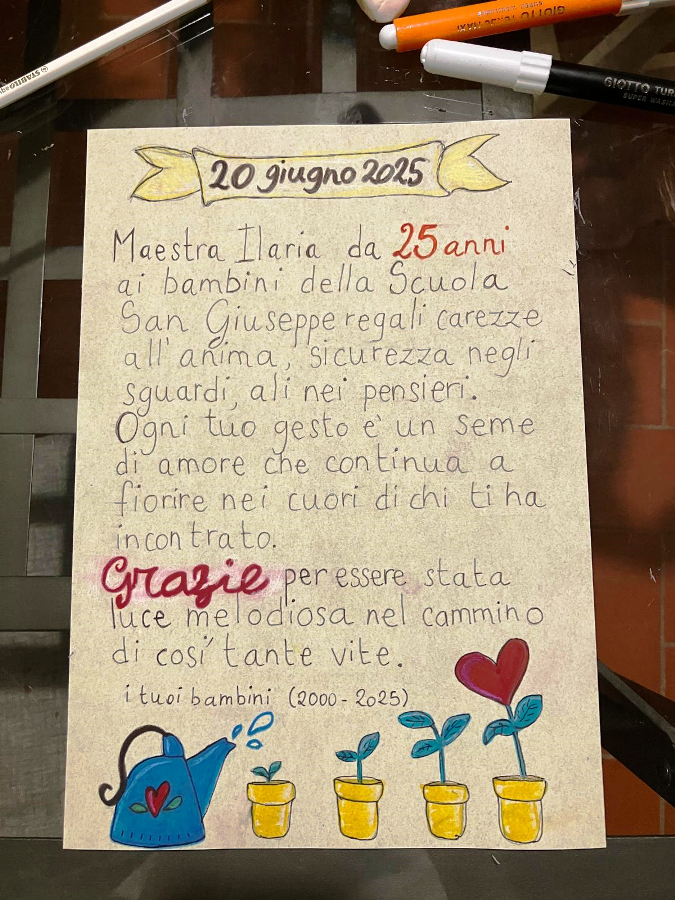 STABILO
GIOTTO TURBO MAXI
GIOTTO TUR
SUPER WASHA
20 giugno 2025
Maestra Ilaria da 25 anni
ai bambini della Scuola
San Giuseppe regali carezze
all'anima, sicurezza negli
sguardi, ali nei pensieri.
Ogni tuo gesto è un seme
di amore che continua a
fiorire nei cuori di chi ti ha
incontrato.
Grazie per essere stata
luce melodiosa nel cammino
di così tante vite.
i tuoi bambini (2000-2025)